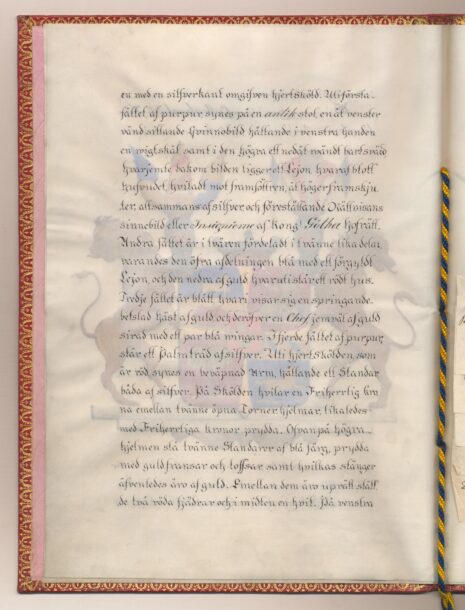 en med en silfverkant omgifven hjertsköld. Uti första
fältet af purpur synes på en antik stol en åt venster
vänd sittande Qvinnobild hållande i venstra handen
en wigtskål samt i den högra ett nedåt wändt bart swärd
hvarjemte bakom bilden ligger ett Lejon, hvaraf blott
hufvudet, hviladt mot framfötteren, åt höger framskju-
ter, altsammans af silfver, och föreställande Rättvisans
sinnebild eller Insignierne af Kongl Götha Hofrätt.
Andra fältet är i tvären fördeladt i tvänne lika delar,
varandes den öfra afdelningen blå med ett förgyldt
Lejon, och den nedra af guld hvaruti står ett rödt hus.
Tredje fältet är blått hvari visar sig en springande
betslad häst af guld och deröfver en Chef jemväl af guld
sirad med ett par blå wingar. I fjerde fältet af purpur,
står ett Palmträd af silfver. Uti hjertskölden som
är röd, synes en beväpnad Arm, hållande ett Standar,
båda af silfver. På Skölden hvilar en Friherrlig Kro
na emellan tvänne öpna Torner hjelmar, likaledes
med Friherrliga kronor prydda. Ofvanpå högra
hjelmen stå tvänne Standarer af blå färg, prydda
med guldfransar och tofsar samt hvilkas stänger
äfvenledes äro af guld. Emellan dem äro uprätt ställ
de två röda fjädrar och i midten en hvit. På venstra